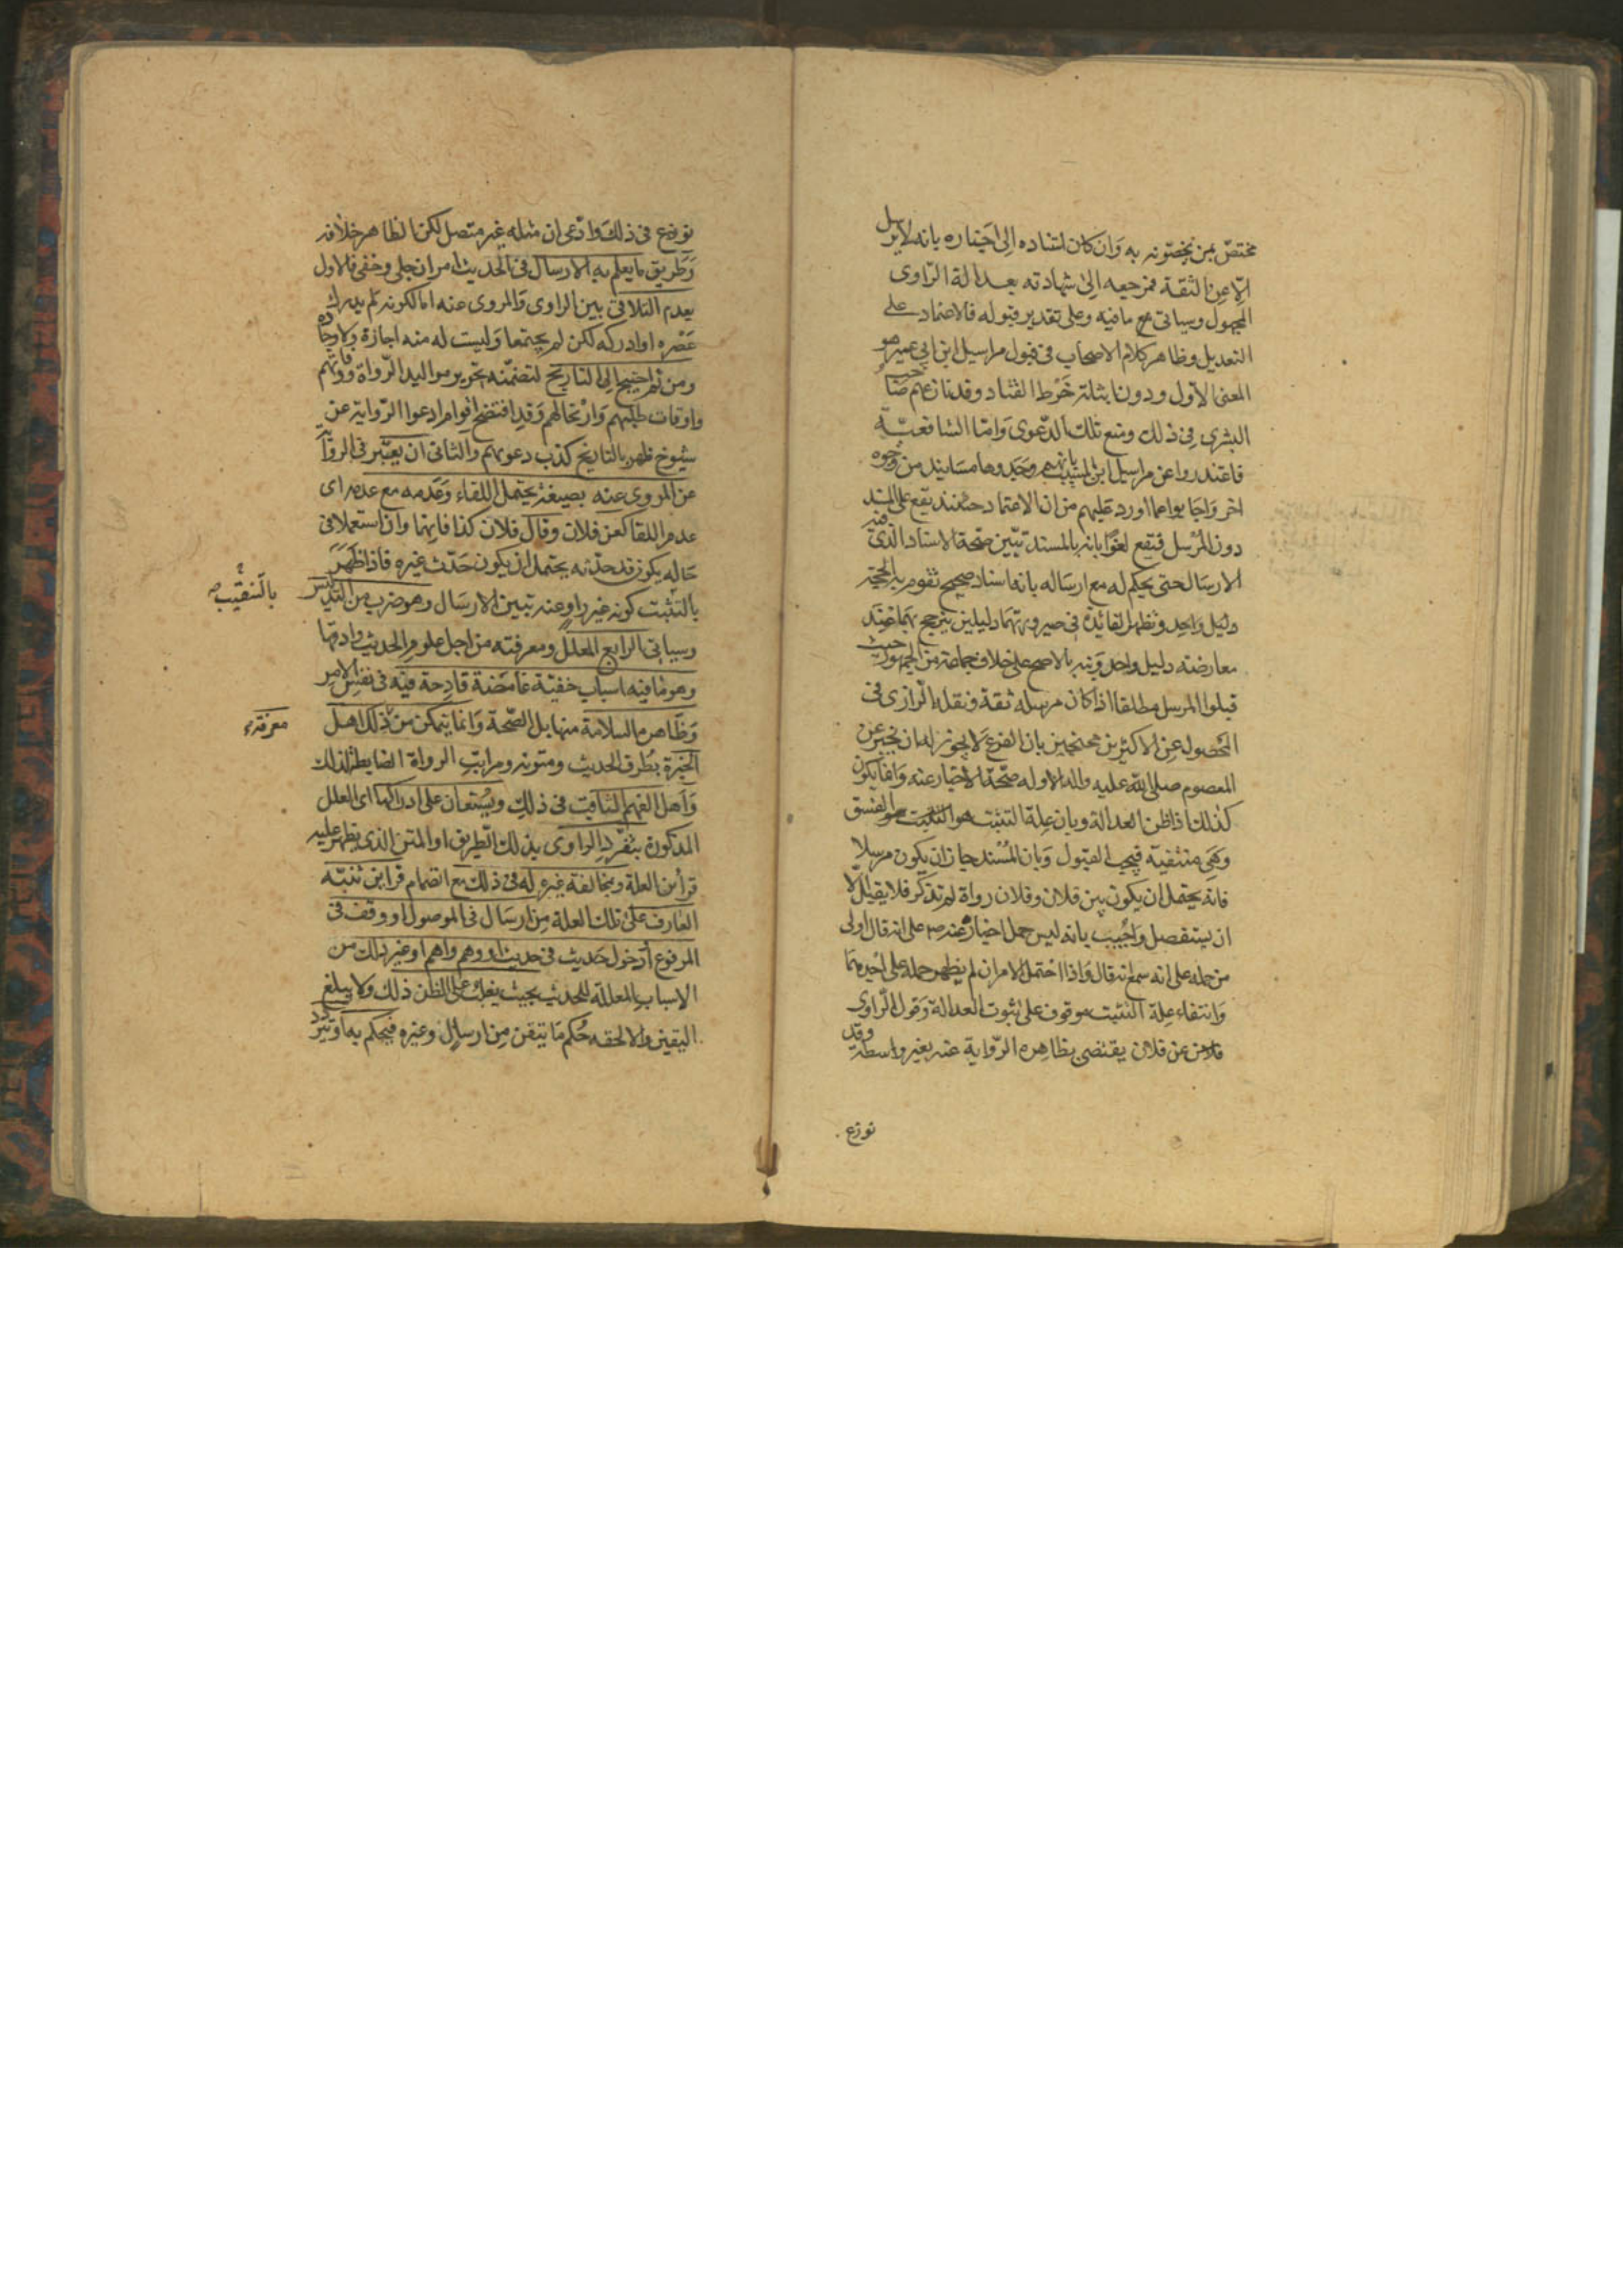 مختصّ بمن يخصّونه به وَان كان استناده اِلى اَخباره بانه لايرسل
اِلّا عن الثقة فمرجعه اِلىٰ شهادته بعدالة الرّاوى
المجهول وسياتى مع مافيه وعلى تقدير قبوله فالاعتماد على
التعديل وظاهر كلام الاصحاب فى قبول مراسيل ابن ابى عمير هو
المعنى الاوّل ودون اثباته خَرْط القتاد وقد نازعهم صاحب
البشرى فى ذلك ومنع تلك الدّعوى وَامّا الشافعيّة
فاعتذروا عن مراسيل ابن المسيّب بانهم وجَدوها مسانيد من وجوه
اخر وَاجَابوا عما اورد عَليهم من ان الاعتماد حينئذ يقع على المسند
دون المُرْسل فيقع لغوًا بانه بالمسند تبيّن صحّة الاسناد الذّى فيه
الارسَال حتى يحكم له مع ارسَاله بانه اسناد صحيح تقوم به الحجّة
دليل وَاحد وتظهر الفائدة فى صيرورتهما دليلين ترجيح بهما عند
معارضة دليل واحد وَنبه بالاصح على خلاف جماعة من الجمهور حيث
قبلوا المرسل مطلقا اذا كان مرسله ثقة ونقله الرّازى فى
المَحصول عن الاكثرين محتجين بان الفرع لَا يجوز له ان يخبر عن
المعصوم صلى الله عليه واله الا وله صحّة الاخبار عنه وَانما يكون
كذلك اذا ظن العدالة وبان علة التثبت هو الفسق
وَهى منتفيّه فيجب القبول وَبان المُسْند جاز ان يكون مرسلا
فانه يحتمل ان يكون بين فلان وفلان رواة لم تذكر فلا يقبل الّا
ان يستفصل وَاُجْيب بانه ليس حمل اخباره عنه ص على انه قال اولى
من حمله على انه سمع انه قال وَاذا احتمل الامران لم يظهر حمله على اَحَدهما
وَانتفاء علة التثبت موقوف على ثبوت العدالة وَقول الرّاوى
فلان عن فلان يقتضى بظاهره الرّواية عنه بغير واسطة وقد
نوزع
نوزع فى ذلك وادّعى ان مثله غير متصل لكن الظاهر خلافه
وَطريق مايعلم به الارسال فى الحديث امران جلى وخفى فالاول
بعدم التلاقى بين الراوى وَالمروى عنه اما لكونه لم يدرك
عَصْره او ادركه لكن لم يجتمعا وَليست له منه اجازة ولا وجادة
ومن ثم احتيج الى التاريخ لتضمّنه تحرير مواليد الرّواة ووفاتهم
واوقات طلبهم وَارْتحالهم وَقد افتضح اقوام ادعوا الرّواية عن
شيوخ ظهر بالتاريخ كذب دعوتهم وَالثانى ان يعبّر فى الرواية
عن المروى عنه بصيغة يحتمل اللقاء وَعَدمه مع عدمه اى
عدم اللقا كعن فلان وقال فلان كذا فانهما وان استعملا فى
حَاله يكون قد حدّثه يحتمل ان يكون حَدّث غيره فاذا ظَهَرَ
بالتّنقيب ص
بالتثبت كونه غير راو عنه تبين الارسَال وهو ضرب من التدليس
وسياتى الرابع المعلّل ومعرفته من اجل علوم الحديث وادقها
وهو مافيه اسباب خفيّة غامَضة قادحة فيه فى نفس الامر
وَظاهره السلامة منها بل الصّحة وَانما يتمكن من ذلك اهل
معرفة
الخبرة بطُرق الحديث ومتونه ومراتب الرواة الضابطة لذلك
وَاَهل الفهم الثاقب فى ذلك ويُستعان على ادراكها اى العلل
المذكورة بتفرّد الراوى بذلك الطريق او المتن الذى تظهر عليه
قرأئن العلة وبمخالفة غيره له فى ذلك مع انضمام قراين تنبّه
العارف على تلك العلة من ارسَال فى الموصول او وقف فى
المرفوع اَو دخول حَديث فى حديث او وهم واهم او غير ذلك من
الاسباب المعللة للحديث بحيث يغلب على الظن ذلك ولا يبلغ
اليقين والا لحقه حُكم مَا تيقن مِن ارسال وغيره فيحكم به اَو تردد